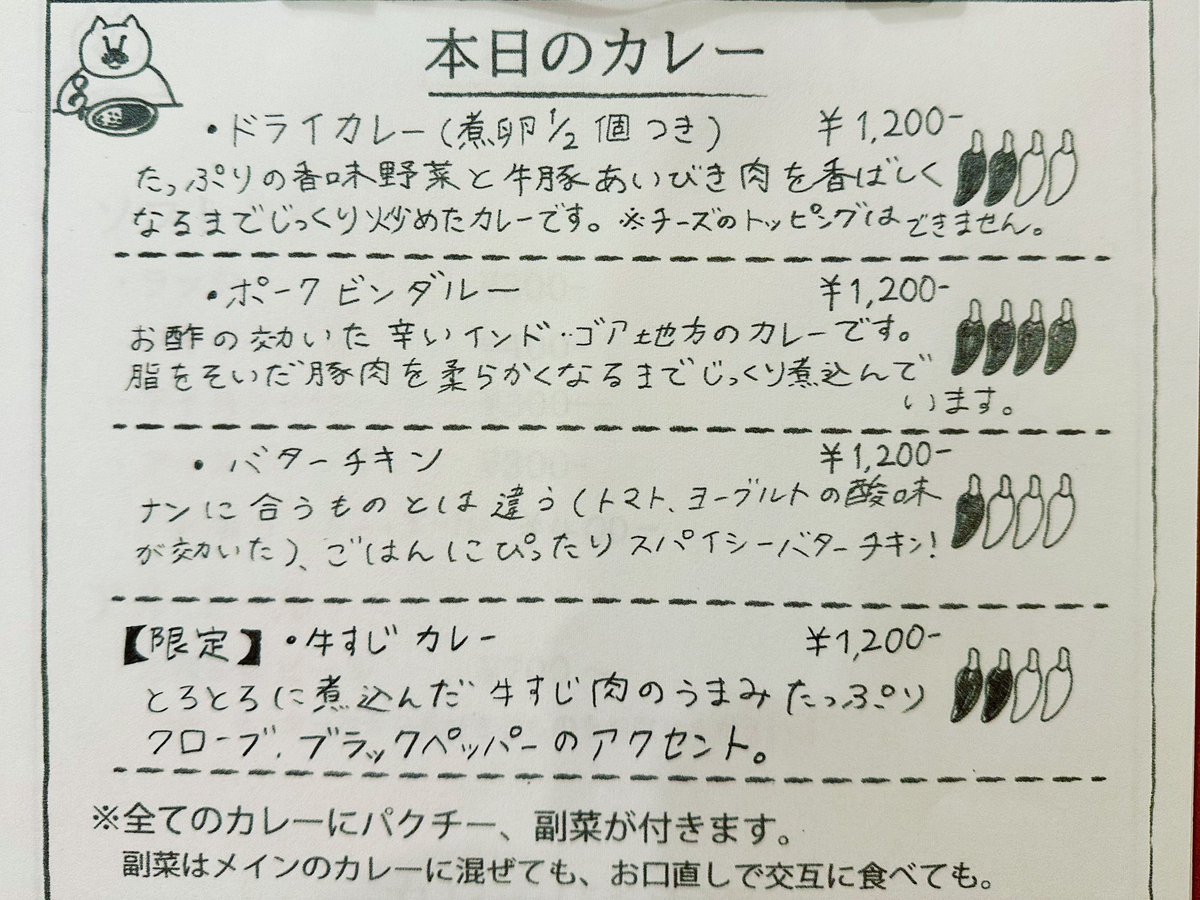 本日のカレー
・ドライカレー(煮卵1/2個つき) ¥1,200-
たっぷりの香味野菜と牛豚あいびき肉を香ばしく
なるまでじっくり炒めたカレーです。※チーズのトッピングはできません。
・ポークビンダルー ¥1,200-
お酢の効いた辛いインド・ゴア地方のカレーです。
脂をそいだ豚肉を柔らかくなるまでじっくり煮込んで
います。
・バターチキン ¥1,200-
ナンに合うものとは違う(トマト、ヨーグルトの酸味
が効いた)、ごはんにぴったりスパイシーバターチキン!
【限定】・牛すじカレー ¥1,200-
とろとろに煮込んだ牛すじ肉のうまみたっぷり
クローブ、ブラックペッパーのアクセント。
※全てのカレーにパクチー、副菜が付きます。
副菜はメインのカレーに混ぜても、お口直しで交互に食べても。